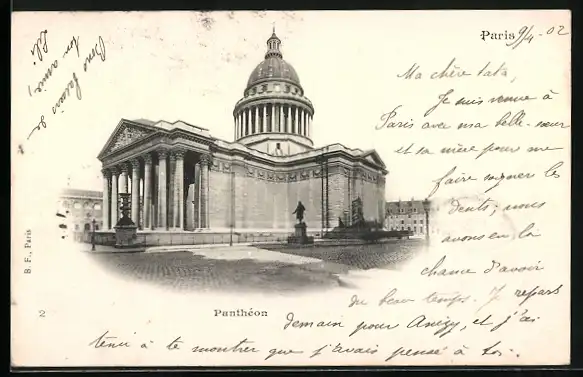 Paris 9/4 - 02
Ma chère Tata,
Je suis venue à
Paris avec ma belle-sœur
et sa mère pour me
faire soigner les
dents, nous
avons eu la
chance d'avoir
du beau temps. Je repars
demain pour Anizy, et j'ai
tenu à te montrer que j'avais pensé à toi.
Bons baisers de
ton amie,
B. F., Paris
2
Panthéon